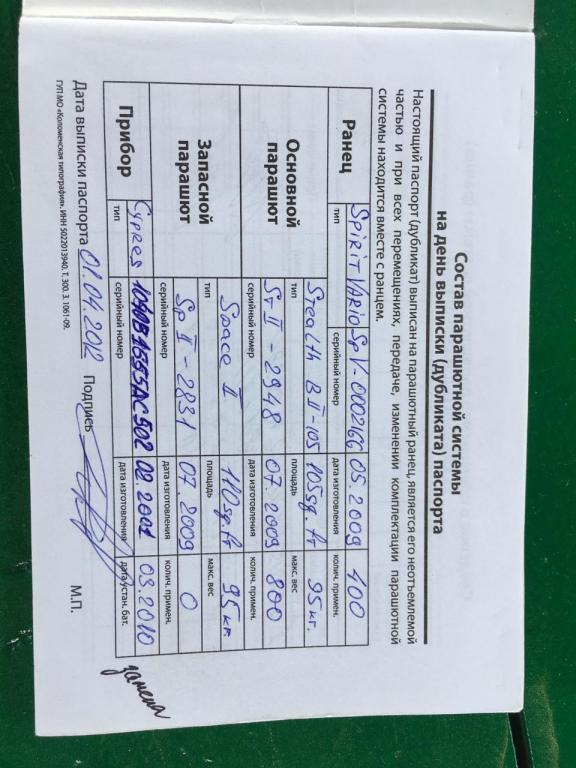 Состав парашютной системы
на день выписки (дубликата) паспорта
Настоящий паспорт (дубликат) выписан на парашютный ранец, является его неотъемлемой
частью и при всех перемещениях, передаче, изменении комплектации парашютной
системы находится вместе с ранцем.
Ранец
Spirit Vario SpV-0002166 05 2009 400
тип серийный номер дата изготовления колич. примен.
Основной парашют
Stealth B II-105 105 sq.ft 95 кг.
тип площадь макс. вес
St II - 2948 07. 2009 800
серийный номер дата изготовления колич. примен.
Запасной парашют
Space II 110 sq.ft 95 кг.
тип площадь макс. вес
Sp II - 2831 07. 2009 0
серийный номер дата изготовления колич. примен.
Прибор
Cypres 02 2001 03.2010
тип серийный номер дата изготовления дата устан. бат.
замена
Дата выписки паспорта 01.04.2012 Подпись М.П.
ГУП МО «Коломенская типография». ИНН 5022013940. Т. 300. З. 1061-09.